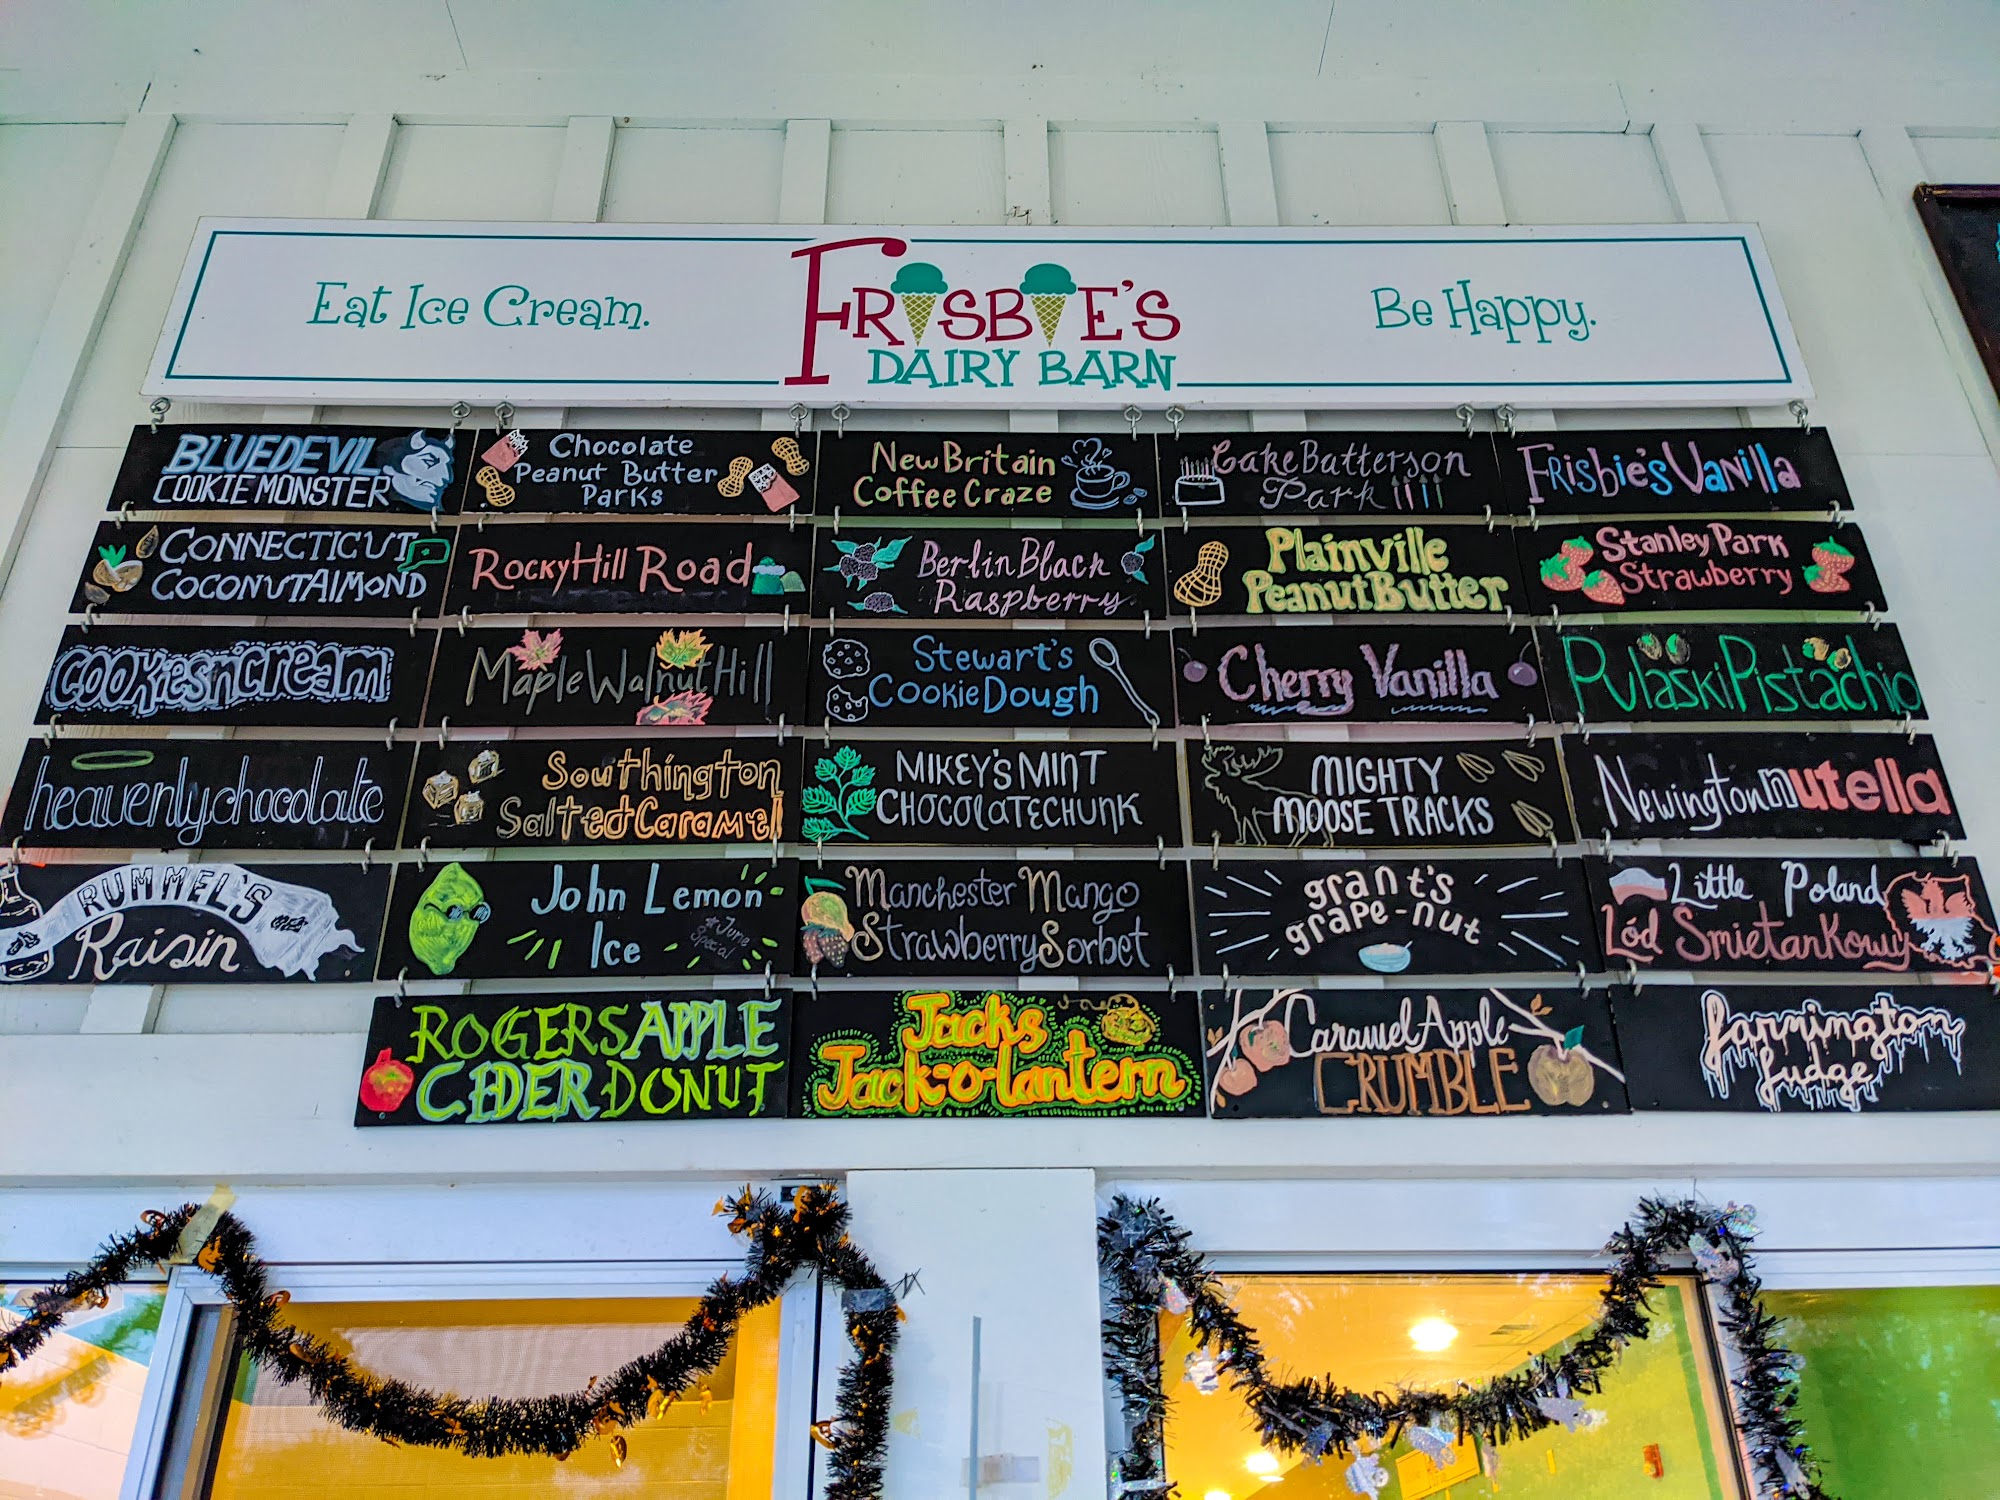 Eat Ice Cream.
FRISBIE'S
DAIRY BARN
Be Happy.
BLUEDEVIL
COOKIE MONSTER
Chocolate
Peanut Butter
Parks
New Britain
Coffee Craze
Cake Batterson
Park
Frisbie's Vanilla
CONNECTICUT
COCONUT ALMOND
Rocky Hill Road
Berlin Black
Raspberry
Plainville
Peanut Butter
Stanley Park
Strawberry
cookies n' cream
Maple Walnut Hill
Stewart's
Cookie Dough
Cherry Vanilla
Pulaski Pistachio
heavenly chocolate
Southington
Salted Caramel
MIKEY'S MINT
CHOCOLATE CHUNK
MIGHTY
MOOSE TRACKS
Newington nutella
RUMMEL'S
Raisin
John Lemon
Ice
*June
Special
Manchester Mango
Strawberry Sorbet
grant's
grape-nut
Little Poland
Lód Smietankowy
ROGERS APPLE
CIDER DONUT
Jacks
Jack-o-lantern
Caramel Apple
CRUMBLE
farmington
fudge